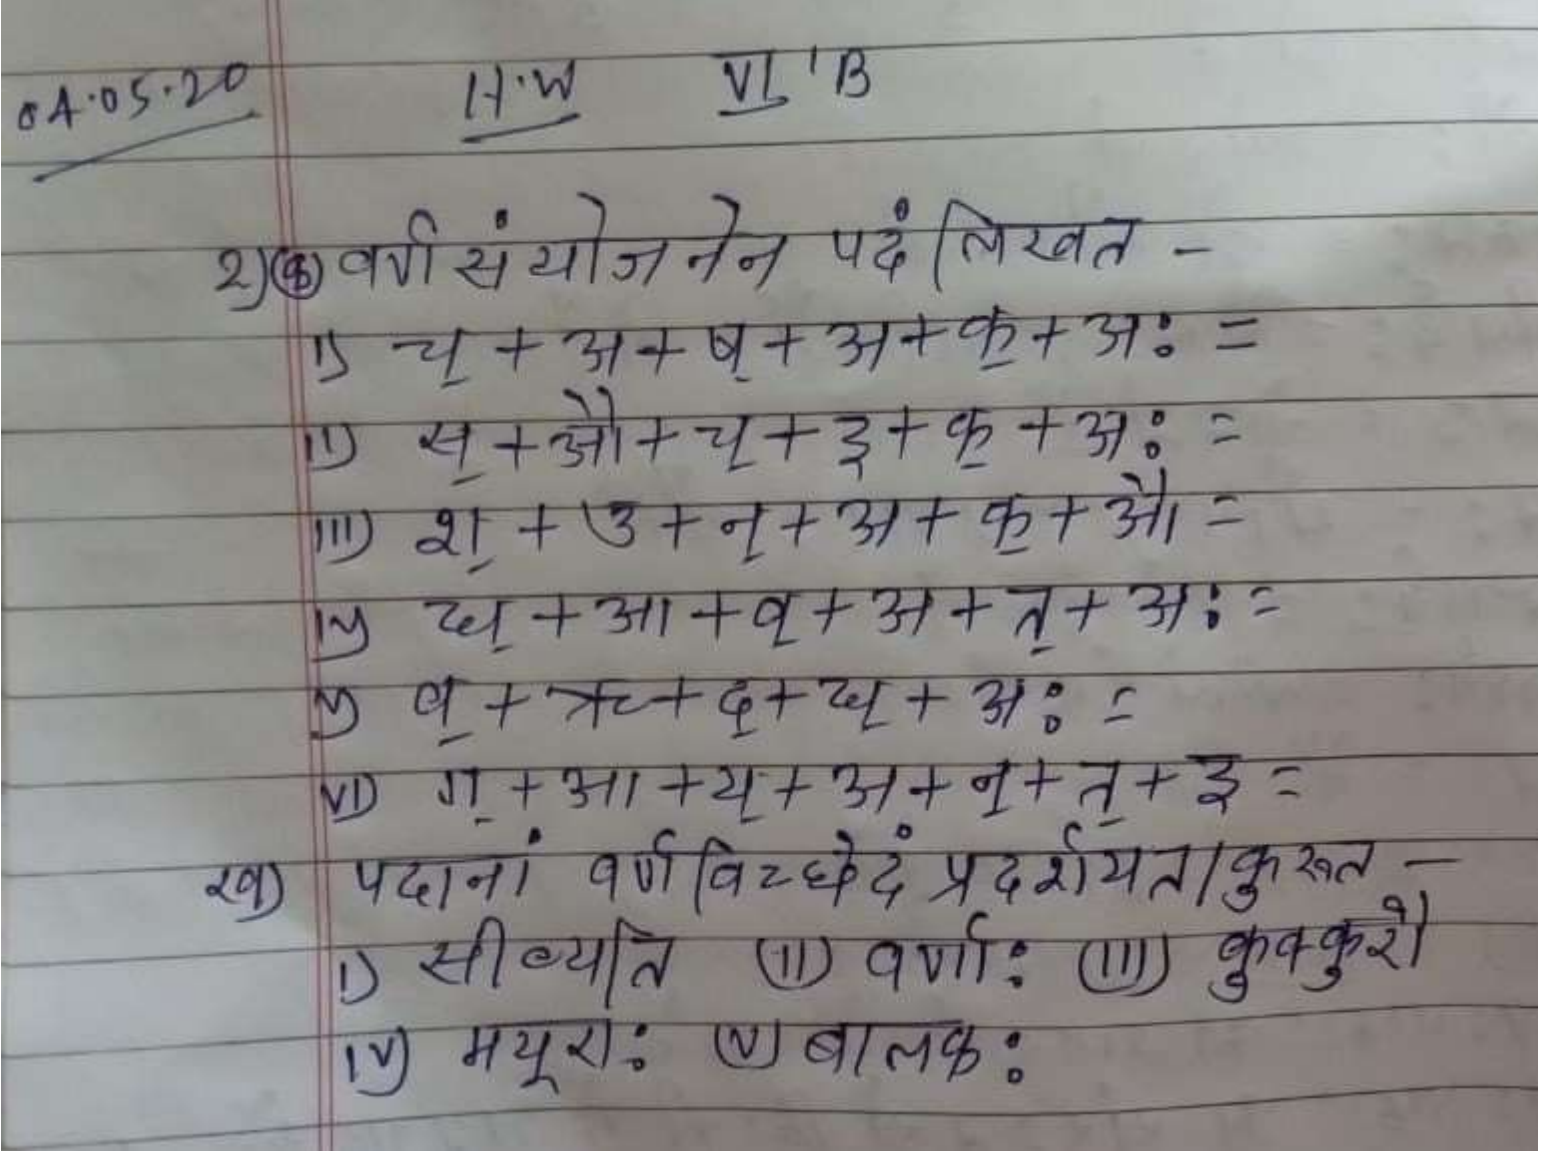 04.05.20 H.W VI 'B
२) (क) वर्ण संयोजनेन पदं लिखत -
i) च् + अ + ष् + अ + क् + अः =
ii) स् + औ + च् + इ + क् + अः =
iii) श् + उ + न् + अ + क् + औ =
iv) ध् + आ + व् + अ + त् + अः =
v) व् + ऋ + द् + ध् + अः =
vi) ग् + आ + य् + अ + न् + त् + इ =
ख) पदानां वर्णविच्छेदं प्रदर्शयत/कुरूत -
i) सीव्यति (ii) वर्णाः (iii) कुक्कुरौ
iv) मयूराः (v) बालकः